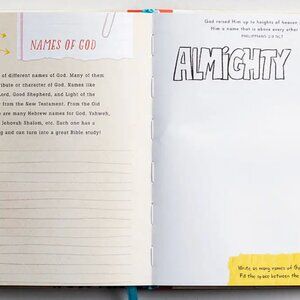 NAMES OF GOD
of different names of God. Many of them
tribute or character of God. Names like
Lord, Good Shepherd, and Light of the
from the New Testament. From the Old
are many Hebrew names for God, Yahweh,
Jehovah Shalom, etc. Each one has a
g and can turn into a great Bible study!
God raised Him up to heights of heaven
Him a name that is above every other
PHILIPPIANS 2:9 NLT
ALMIGHTY
Write as many names of Go
Fill the space between the